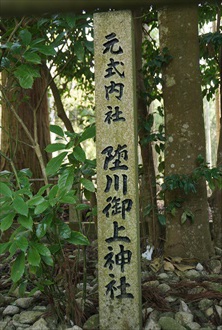 元式内社 堕川御上神社